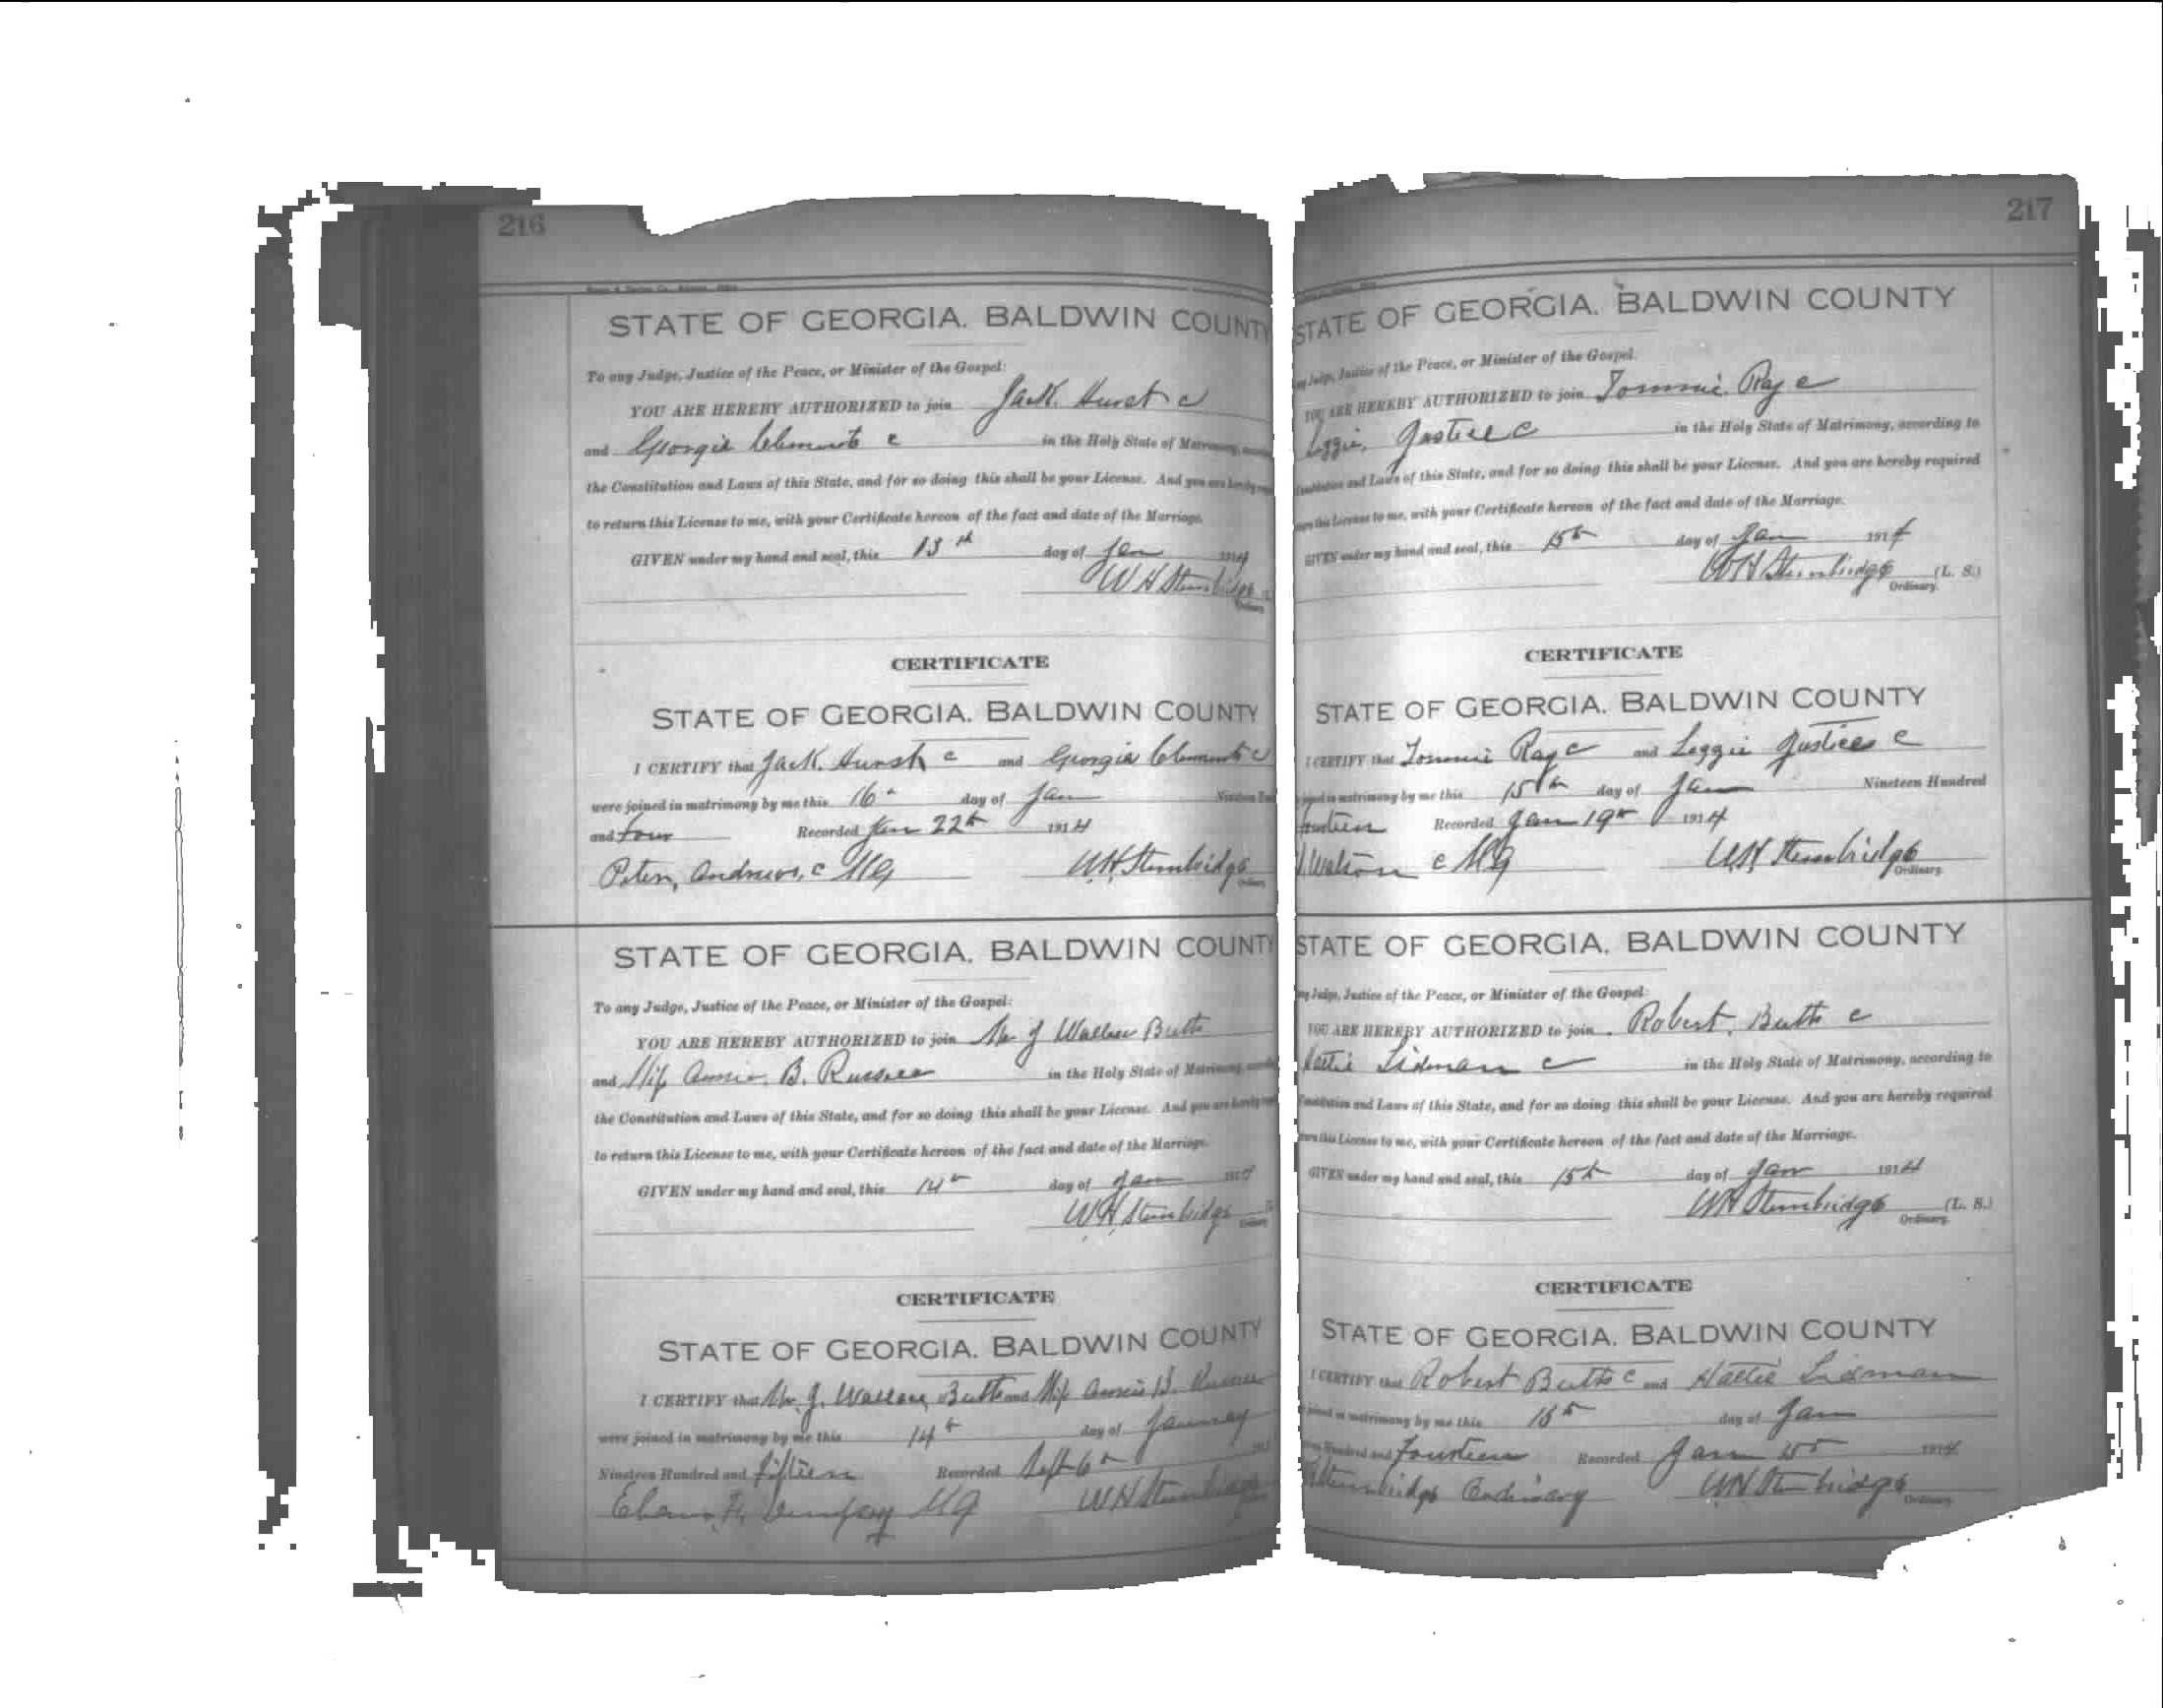 216
STATE OF GEORGIA. BALDWIN COUNTY
To any Judge, Justice of the Peace, or Minister of the Gospel:
YOU ARE HEREBY AUTHORIZED to join Jack Hurst c
and Georgia Clements c in the Holy State of Matrimony,
the Constitution and Laws of this State, and for so doing this shall be your License. And you are hereby
to return this License to me, with your Certificate hereon of the fact and date of the Marriage.
GIVEN under my hand and seal, this 13th day of Jan 1914
W H Stembridge
Ordinary
CERTIFICATE
STATE OF GEORGIA. BALDWIN COUNTY
I CERTIFY that Jack Hurst c and Georgia Clements c
were joined in matrimony by me this 16 day of Jan Nineteen
and four Recorded Jan 22 1914
Peter Andrews, c MG WH Stembridge
Ordinary
STATE OF GEORGIA. BALDWIN COUNTY
To any Judge, Justice of the Peace, or Minister of the Gospel:
YOU ARE HEREBY AUTHORIZED to join Mr J Wallace Butts
and Annie B. Russell in the Holy State of Matrimony
the Constitution and Laws of this State, and for so doing this shall be your License. And you are hereby
to return this License to me, with your Certificate hereon of the fact and date of the Marriage.
GIVEN under my hand and seal, this 14th day of Jan
W H Stembridge
Ordinary
CERTIFICATE
STATE OF GEORGIA. BALDWIN COUNTY
I CERTIFY that Mr. J. Wallace Butts and Annie B. Russell
were joined in matrimony by me this 14th day of January
Nineteen Hundred and fifteen Recorded Sept 6th
MG WH Stembridge
217
STATE OF GEORGIA. BALDWIN COUNTY
Judge, Justice of the Peace, or Minister of the Gospel.
YOU ARE HEREBY AUTHORIZED to join Tommie Ray c
Leggie Justice c in the Holy State of Matrimony, according to
Constitution and Laws of this State, and for so doing this shall be your License. And you are hereby required
this License to me, with your Certificate hereon of the fact and date of the Marriage.
GIVEN under my hand and seal, this 15th day of Jan 1914
WH Stembridge (L. S.)
Ordinary.
CERTIFICATE
STATE OF GEORGIA. BALDWIN COUNTY
I CERTIFY that Tommie Ray c and Leggie Justices c
joined in matrimony by me this 15th day of Jan Nineteen Hundred
fourteen Recorded Jan 19th 1914
Watson c MG W.H. Stembridge
Ordinary.
STATE OF GEORGIA. BALDWIN COUNTY
Judge, Justice of the Peace, or Minister of the Gospel:
YOU ARE HEREBY AUTHORIZED to join Robert Butts c
Hattie Lidman c in the Holy State of Matrimony, according to
Constitution and Laws of this State, and for so doing this shall be your License. And you are hereby required
this License to me, with your Certificate hereon of the fact and date of the Marriage.
GIVEN under my hand and seal, this 15th day of Jan 1914
WH Stembridge (L. S.)
Ordinary.
CERTIFICATE
STATE OF GEORGIA. BALDWIN COUNTY
I CERTIFY that Robert Butts c and Hattie Lidman
joined in matrimony by me this 15th day of Jan
Hundred and Fourteen Recorded Jan 1914
Stembridge Ordinary WH Stembridge
Ordinary.